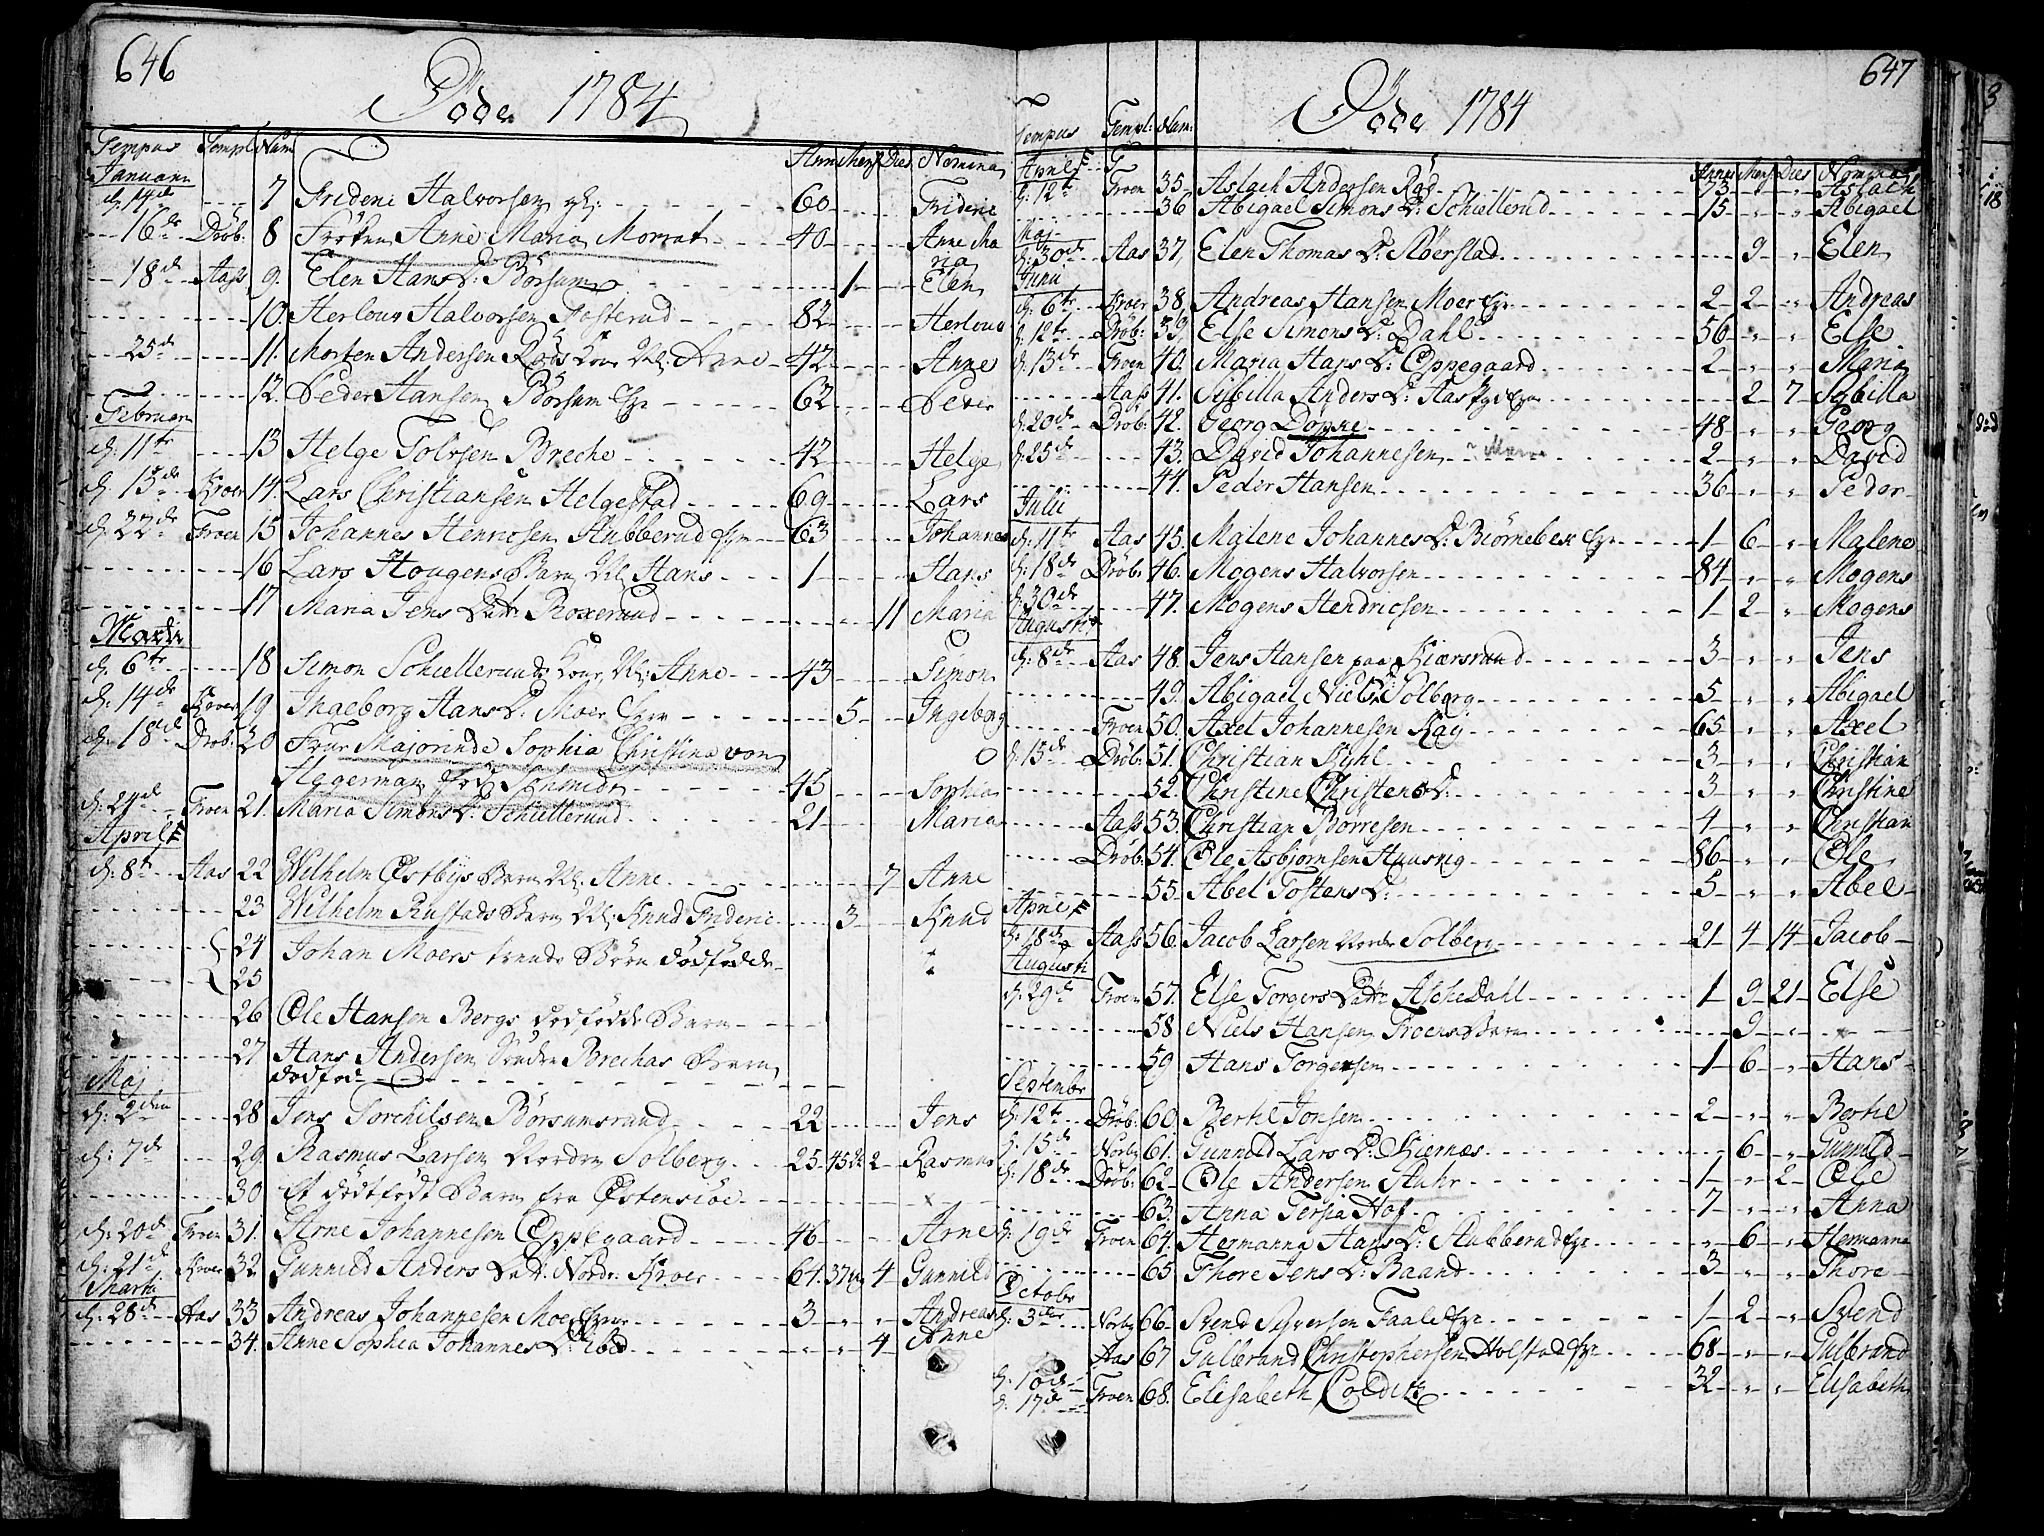 646
Døde 1784
Tempus Templ Num Anni Mens Dies Nomina
Januarii
d: 14de 7 Frideric Halvorsen 60 Frideric
16de Drøb: 8 Frøken Anne Maria Morrat 40 Anne Maria
18de Aass 9. Elen Hans D: Børsum 1 Elen
10. Herlour Halvorsen Fosterud 82 Herlour
25de 11. Morten Andersen Røds Kone Nl: Anne 42 Anne
12. Peder Hansen Børsum Eje 62 Peder
Februarii
d: 11te 13 Helge Tolvsen Breche 42 Helge
d. 15de Kroer 14. Lars Christiansen Helgestad 69 Lars
d. 22de Froen 15 Johannes Henricsen Stubberud Eje 63 Johannes
16 Lars Hougens Barn Nl Hans 1 Hans
17 Maria Jens Datt: Roxerud 11 Maria
Martii
d. 6te 18 Simon Schiellerud Kone Nl: Anne 43 Simon
d: 14de Kroer 19 Ingeborg Hans D: Moer Eje 5 Ingeborg
d: 18de Drøb: 20 Frue Majorinde Sophia Christina von
Hagerman Fød Schmidt 45 Sophia
d: 24de Froen 21. Maria Simons D: Schiellerud 21 Maria
Aprilis
d: 8te Aas 22 Wilhelm Østbyes Barn Nl. Anne 7 Anne
23 Wilhelm Rustads Barn Nl: Knud Frideric 3 Knud
24 Johan Moers tvende Børn dødfødde
25
26 Ole Hansen Bergs dødfødde Barn
27 Hans Andersen Søndre Brechas Barn
dødfød
Maj
d: 2den 28 Jens Torchilsen Børsumsrand 22 Jens
d: 7de 29. Rasmus Larsen Nordre Solberg 25 45 2 Rasmus
30 Et dødfødt Barn fra Østensiøe
d: 20de Froen 31. Arne Johannesen Oppegaard 46 Arne
d: 21de Kroer 32 Gunnild Anders Datt: Nordr: Kroer 64. 37 4 Gunnild
Martii
d: 28de Aas 33 Andreas Johannesen Moer Eje 3 Andreas
34. Anne Sophia Johannes D: ibid 4 Anne
647
Døde 1784
Tempus Templ: Num: Anni Mens Dies Nomina
Aprilis
d: 12te Froen 35 Aslach Andersen Rød 73 Aslach
36 Abigael Simons D: Schiellerud 15 Abigael
Maj
d: 30de Aas 37, Elen Thomas D: Røerstad 9 Elen
Junii
d: 6te Kroer 38, Andreas Hansen Moer Eje 2 2 Andreas
d: 12te Drøb: 39, Else Simons D: Dahl 56 Else
d: 13de Froen 40. Maria Hans D: Oppegaard 2 Maria
Aass 41. Sybilla Anders D: Aasbye Eje 2 7 Sybilla
d: 20de Drøb: 42. Georg Dopne 48 Georg
d: 25de 43. David Johannesen 2 David
44. Peder Hansen 36 Peder
Julii
d: 11te Aas 45. Malene Johannes D: Biørnebek Eje 1 6 Malene
d: 18de Drøb: 46. Mogens Halvorsen 84 Mogens
d: 30de 47. Mogens Hendricsen 1 2 Mogens
Augusti
d: 8de Aas 48. Jens Hansen paa Kiærsrand 3 Jens
49. Abigael Niels D: Solberg 5 Abigael
Froen 50. Axel Johannesen Kay 65 Axel
d: 15de Drøb: 51. Christian Kyhl 3 Christian
52. Christine Christens D: 3 Christine
Aass 53. Christian Børresen 4 Christian
Drøb: 54. Ole Asbjørnsen Huusvig 86 Ole
55. Abel Tostens D: 5 Abel
Aprilis
d: 18de Aass 56. Jacob Larsen Nordre Solberg 21 4 14 Jacob
Augusti
d. 29de Froen 57. Else Torgers Datt: Asche Dahl 1 9 21 Else
58 Niels Hansen Froens Barn 9
59. Hans Torgersen 1 6 Hans
Septembr
d: 12te Drøb: 60 Bertil Jonsen 2 Bertil
d: 15de Norby 61. Gunnild Lars D: Kiernæs 6 Gunnild
d: 18de Drøb: 62 Ole Andersen Stuhr 1 2 Ole
63. Anna Tersia Hof 7 Anna
d: 19de Froen 64. Hermanna Hans D: Stubberud Eje 6 Hermanna
65 Thore Jens D: Baand 3 Thore
Octobr
d: 3die Norby 66 Svend Syversen Faale Eje 1 2 Svend
d: 10de Aas 67 Gulbrand Christophersen Holstad Eje 68 Gulbrand
d: 17de Froen 68. Elisabeth Colditz 32 Elisabeth